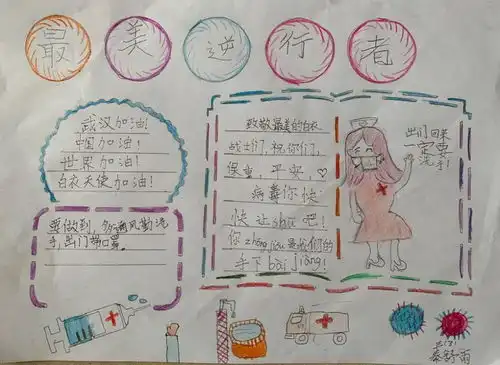 最美逆行者
武汉加油!
中国加油!
世界加油!
白衣天使加油!
要做到,多通风勤洗
手,出门带口罩。
致敬最美的白衣
战士们,祝你们,
保重,平安,♡
病毒你快
快让shū吧!
你zhōng jiū是我们的
手下bài jiàng!
出们回来
一定要
洗手!